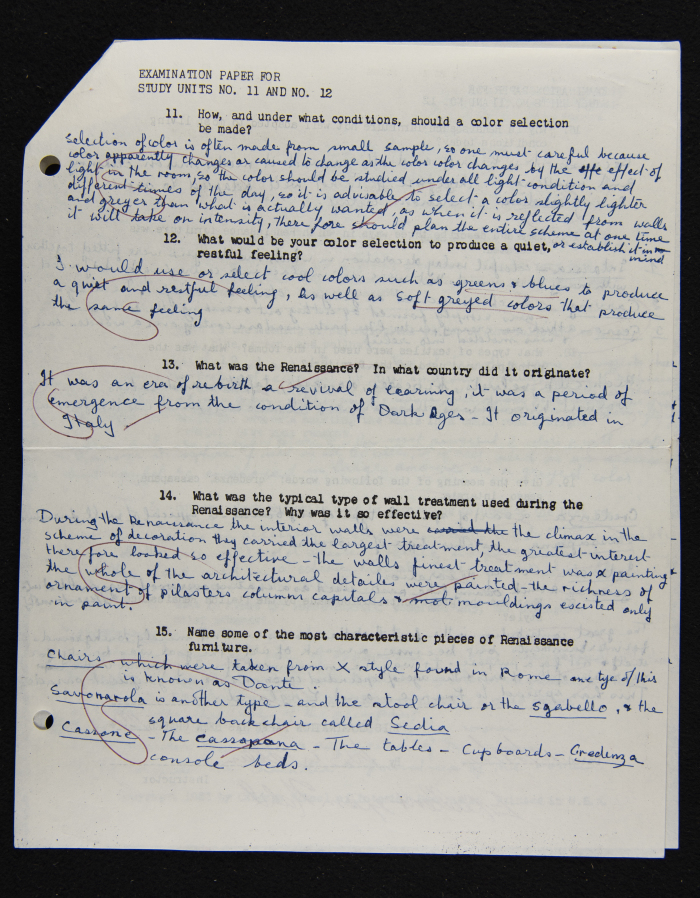 EXAMINATION PAPER FOR
STUDY UNITS NO. 11 AND NO. 12
11. How, and under what conditions, should a color selection
be made?
Selection of color is often made from small sample, so one must careful because
color apparently changes or caused to change as the color color changes by the effect of
light in the room, so the color should be studied under all light condition and
different times of the day, so it is advisable to select a color slightly lighter
and greyer than what is actually wanted, as when it is reflected from walls
it will take on intensity, there fore should plan the entire scheme at one time
or establish it in
mind
12. What would be your color selection to produce a quiet,
restful feeling?
I would use or select cool colors such as greens & blues to produce
a quiet and restful feeling, As well as Soft greyed colors that produce
the same feeling
13. What was the Renaissance? In what country did it originate?
It was an era of rebirth a revival of learning, it was a period of
emergence from the condition of Dark Ages - It originated in
Italy
14. What was the typical type of wall treatment used during the
Renaissance? Why was it so effective?
During the Renaissance the interior walls were the climax in the
scheme of decoration they carried the largest treatment, the greatest interest
therefore looked so effective - the walls finest treatment was painting
the whole of the architectural detailes were painted - the richness of
ornament of pilasters columns capitals & mouldings escisted only
in paint.
15. Name some of the most characteristic pieces of Renaissance
furniture.
Chairs which were taken from X style found in Rome one tye of this
is known as Dante.
Savonarola is another type - and the stool chair or the sgabello, & the
square back chair called Sedia
Cassone - The cassapana - The tables - Cupboards - Credenza
console beds.